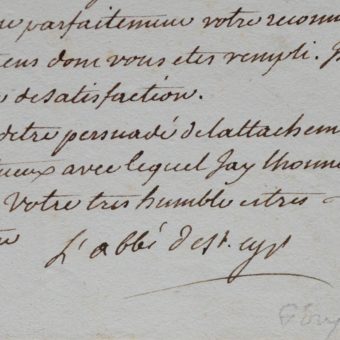 parfaitement votre reconn
tens dont vous etes rempli. J
de satisfaction.
detre persuadé delattachem
tueux avec lequel Jay lhonne
votre tres humble et tres
L'abbé de st. cyr